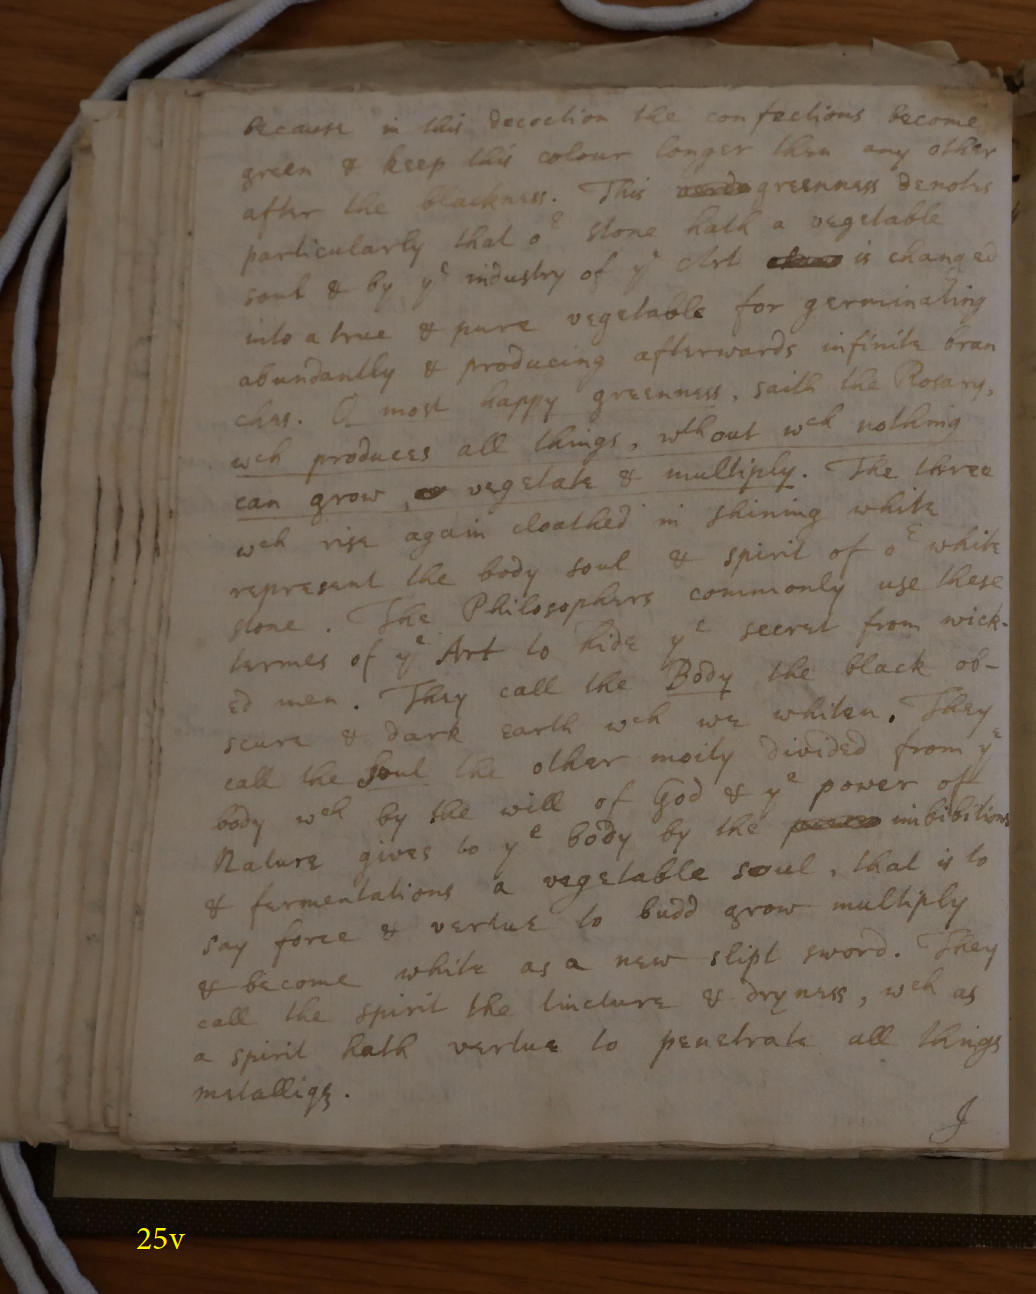 because in this decoction the confections become
green & keep this colour longer then any other
after the blackness. This greenness denotes
particularly that oʳ stone hath a vegetable
soul & by yᵉ industry of yᵉ Art is changed
into a true & pure vegetable for germinating
abundantly & producing afterwards infinite bran
ches. O most happy greenness, saith the Rosary,
wᶜʰ produces all things, wᵗʰout wᶜʰ nothing
can grow, vegetate & multiply. The three
wᶜʰ rise again cloathed in shining white
represent the body soul & spirit of oʳ white
stone. The Philosophers commonly use these
termes of yᵉ Art to hide yᵉ secret from wick-
ed men. They call the Body the black ob-
scure & dark earth wᶜʰ we whiten. They
call the Soul the other moity divided from yᵉ
body wᶜʰ by the will of God & yᵉ power of
Nature gives to yᵉ body by the imbibitions
& fermentations a vegetable soul, that is to
say force & vertue to budd grow multiply
& become white as a new slipt sword. They
call the spirit the tincture & dryness, wᶜʰ as
a spirit hath vertue to penetrate all things
metalliqꝫ.
I
25v